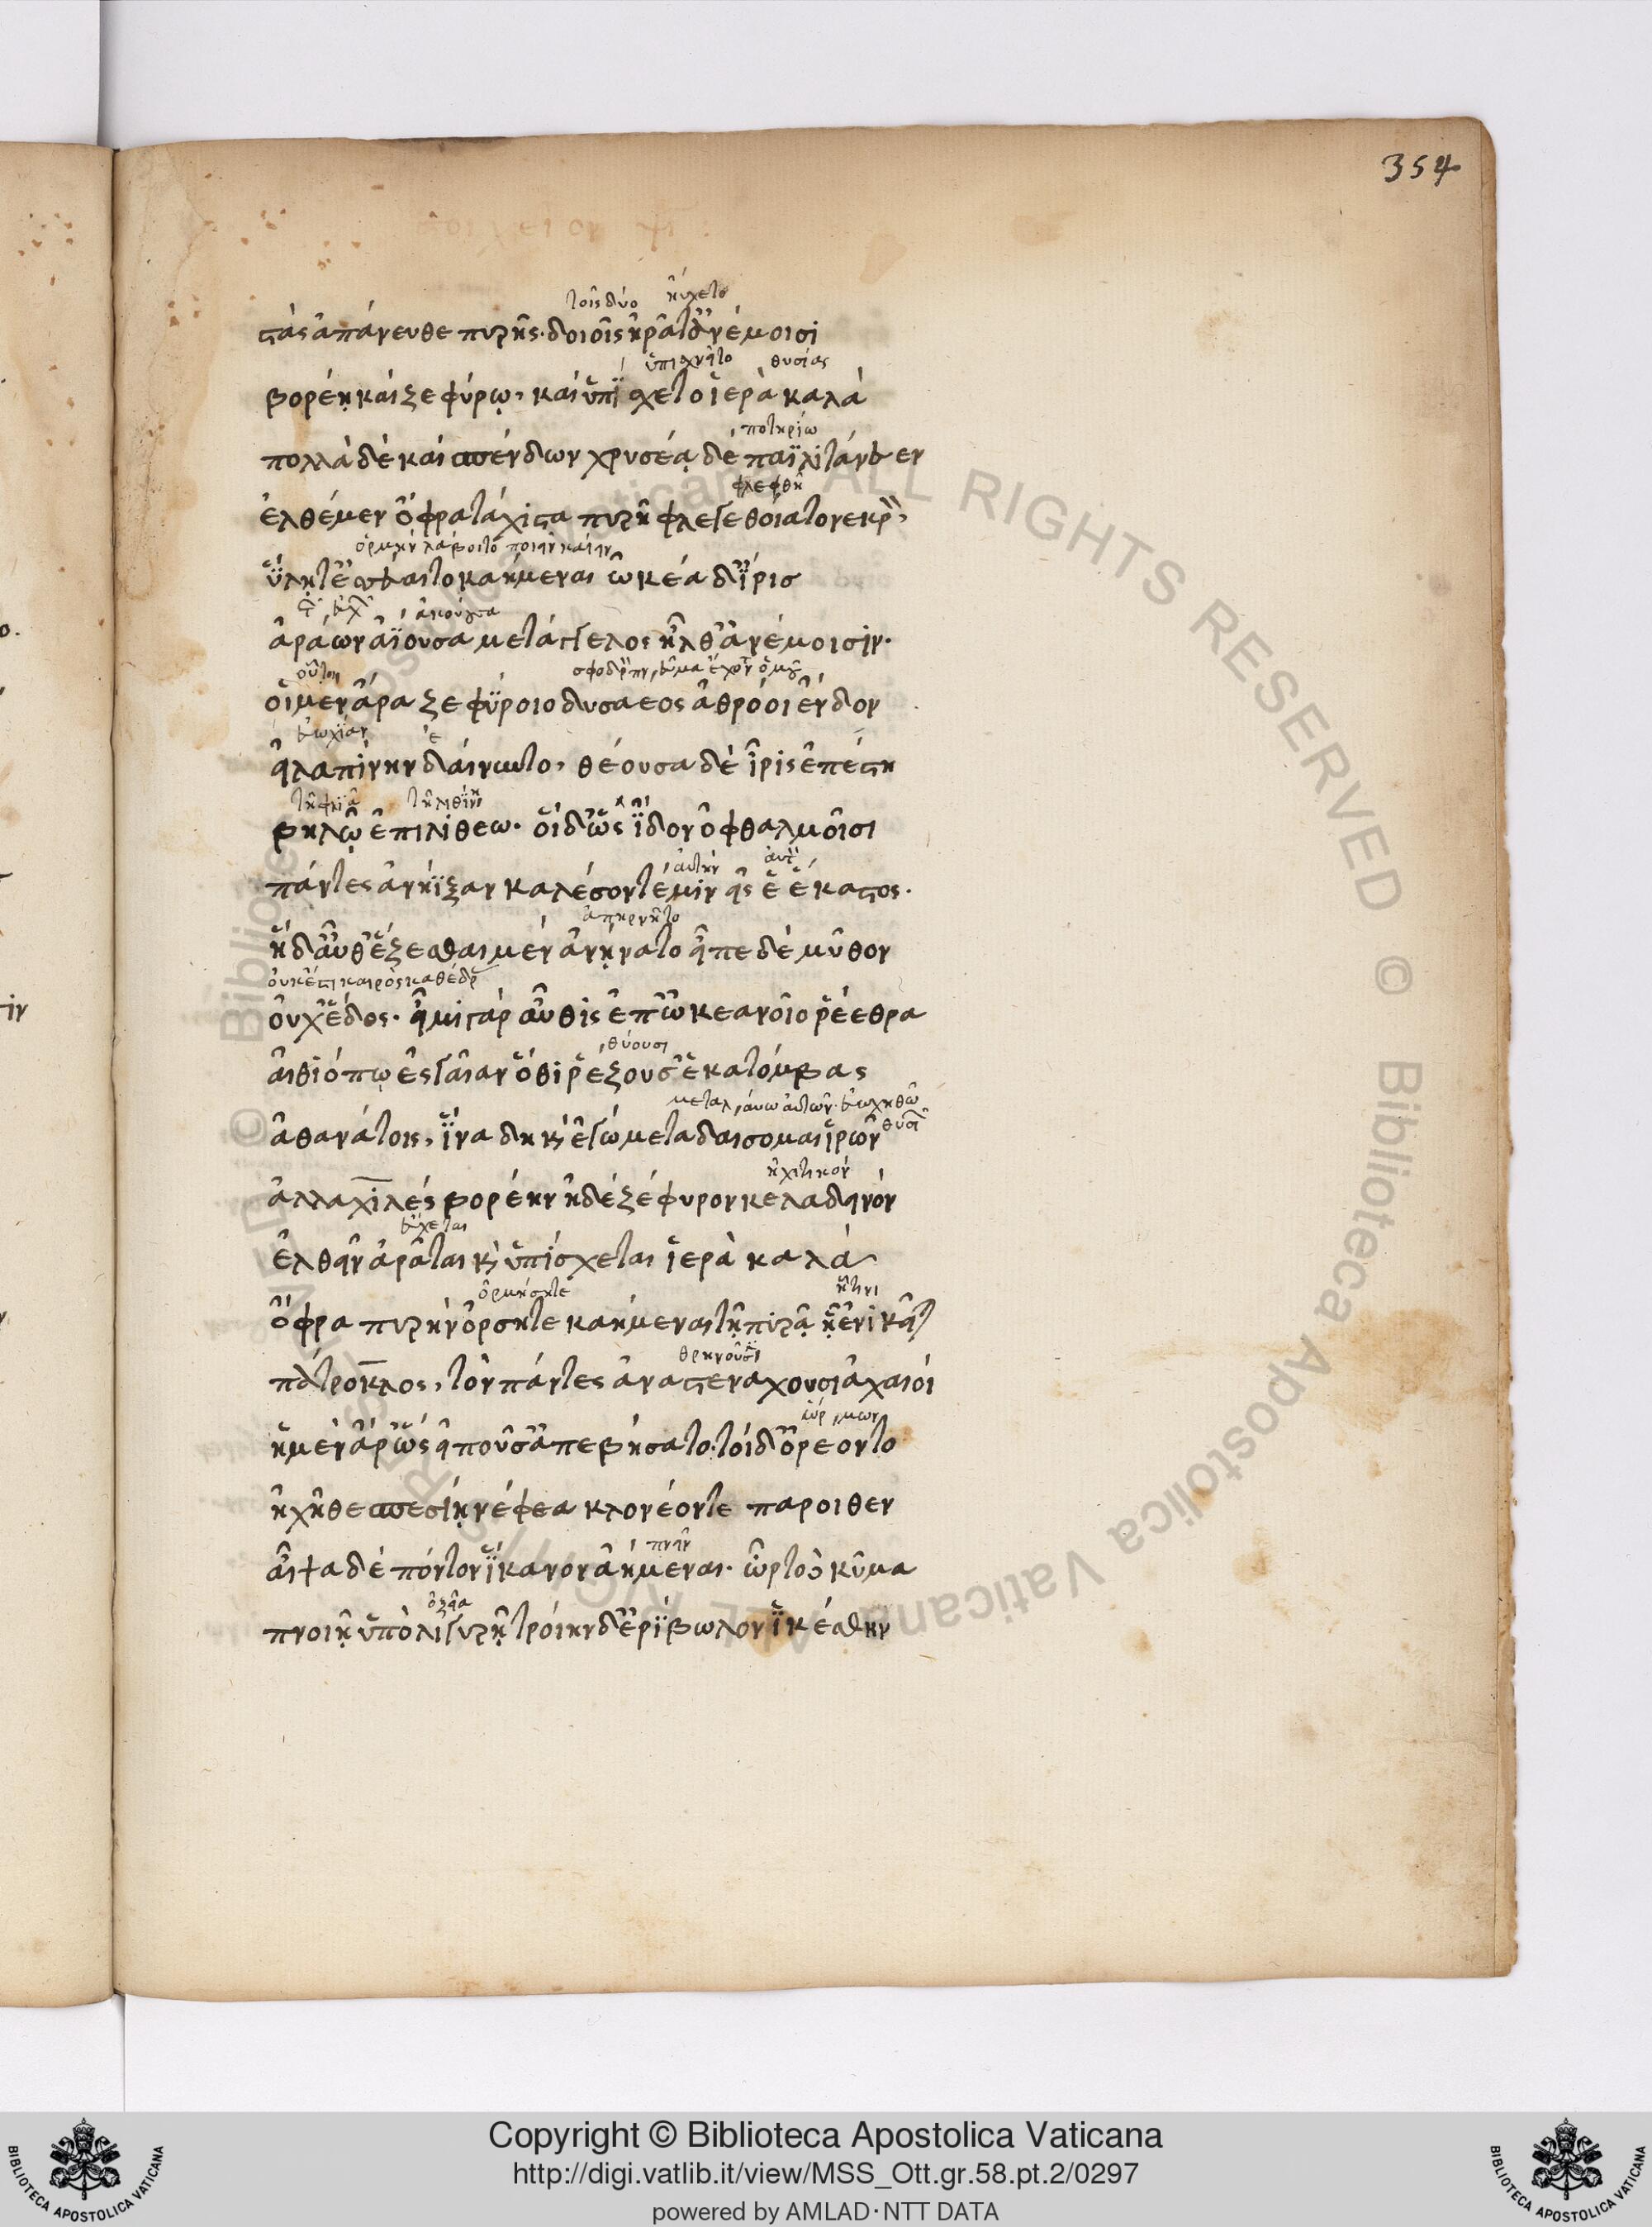 354
τοῖς δύο ηὔχετο
στὰς ἀπάνευθε πυρῆς· δοιοῖς ἠρᾶτ' ἀνέμοισι
ὑπισχνεῖτο θυσίας
βορέῃ καὶ ζεφύρῳ, καὶ ὑπίσχετο ἱερὰ καλά
ποτηρίω
πολλὰ δὲ καὶ σπένδων χρυσέῳ δέπαϊ λιτάνευεν
φλεχθῆ
ἐλθέμεν ὄφρα τάχιστα πυρῆ φλεγεθοίατο νεκρ
ὁρμὴν λάβοιτο ποιεῖν καίειν
ὕλῃ τ' ἐσεύαιτο καήμεναι ὠκέα δ' ἶρις
ἀκούουσα
ἀράων ἀΐουσα μετάγγελος ἦλθ' ἀνέμοισιν·
οὗτοι
οἱ μὲν ἄρα ζεφύροιο δυσαέος ἀθρόοι ἔνδον
εὐωχίαν ε
εἰλαπίνην δαίνυντο, θέουσα δὲ ἶρις ἐπέστη
βηλῷ ἐπι λιθέω· οἱ δ' ὡς ἴδον ὀφθαλμοῖσι
αὐτήν
πάντες ἀνήϊξαν καλέοντέ μιν εἰς ἓ ἕκαστος·
ἀπηρνεῖτο
ἡ δ' αὖθ' ἕζεσθαι μὲν ἀνήνατο εἶπε δὲ μῦθον
οὐκ ἔστι καιρὸς καθέδρ
οὐχ ἕδος· εἶμι γὰρ αὖθις ἐπ' ὠκεανοῖο ῥέεθρα
θύουσι
αἰθιόπω ἐς γαῖαν ὅθι ῥέζουσ' ἑκατόμβας
ἀθανάτοις, ἵνα δὴ κ ἐγὼ μεταδαίσομαι ἱρῶν θυσι
ἠχητικόν
ἀλλ' ἀχιλεύς βορέην ἠδὲ ζέφυρον κελαδεινόν
εὔχεται
ἐλθεῖν ἀρᾶται κ ὑπίσχεται ἱερὰ καλά
ὁρμήσητε ᾗτινι
ὄφρα πυρὴν ὄρσητε καήμεναι τῇ πυρᾷ ᾗ ἔνι κεῖτ
θρηνοῦσι
πάτροκλος, τὸν πάντες ἀναστενάχουσι ἀχαιοί
ἡ μὲν ἄρ' ὣς εἰποῦσ' ἀπεβήσατο· τοί δ' ὀρέοντο
ἠχῆ θεσπεσίῃ νέφεα κλονέοντε πάροιθεν
πνεῖν
αἶψα δὲ πόντον ἵκανον ἀήμεναι· ὦρτο δὲ κῦμα
ὀξεῖα
πνοιῇ ὑπὸ λιγυρῇ τροίην δ' ἐρίβωλον ἱκέσθην
Copyright © Biblioteca Apostolica Vaticana
http://digi.vatlib.it/view/MSS_Ott.gr.58.pt.2/0297
powered by AMLAD·NTT DATA
BIBLIOTECA APOSTOLICA VATICANA
BIBLIOTECA APOSTOLICA VATICANA
© Biblioteca Apostolica Vaticana ALL RIGHTS RESERVED © Biblioteca Apostolica Vaticana ALL RIGHTS RESERVED